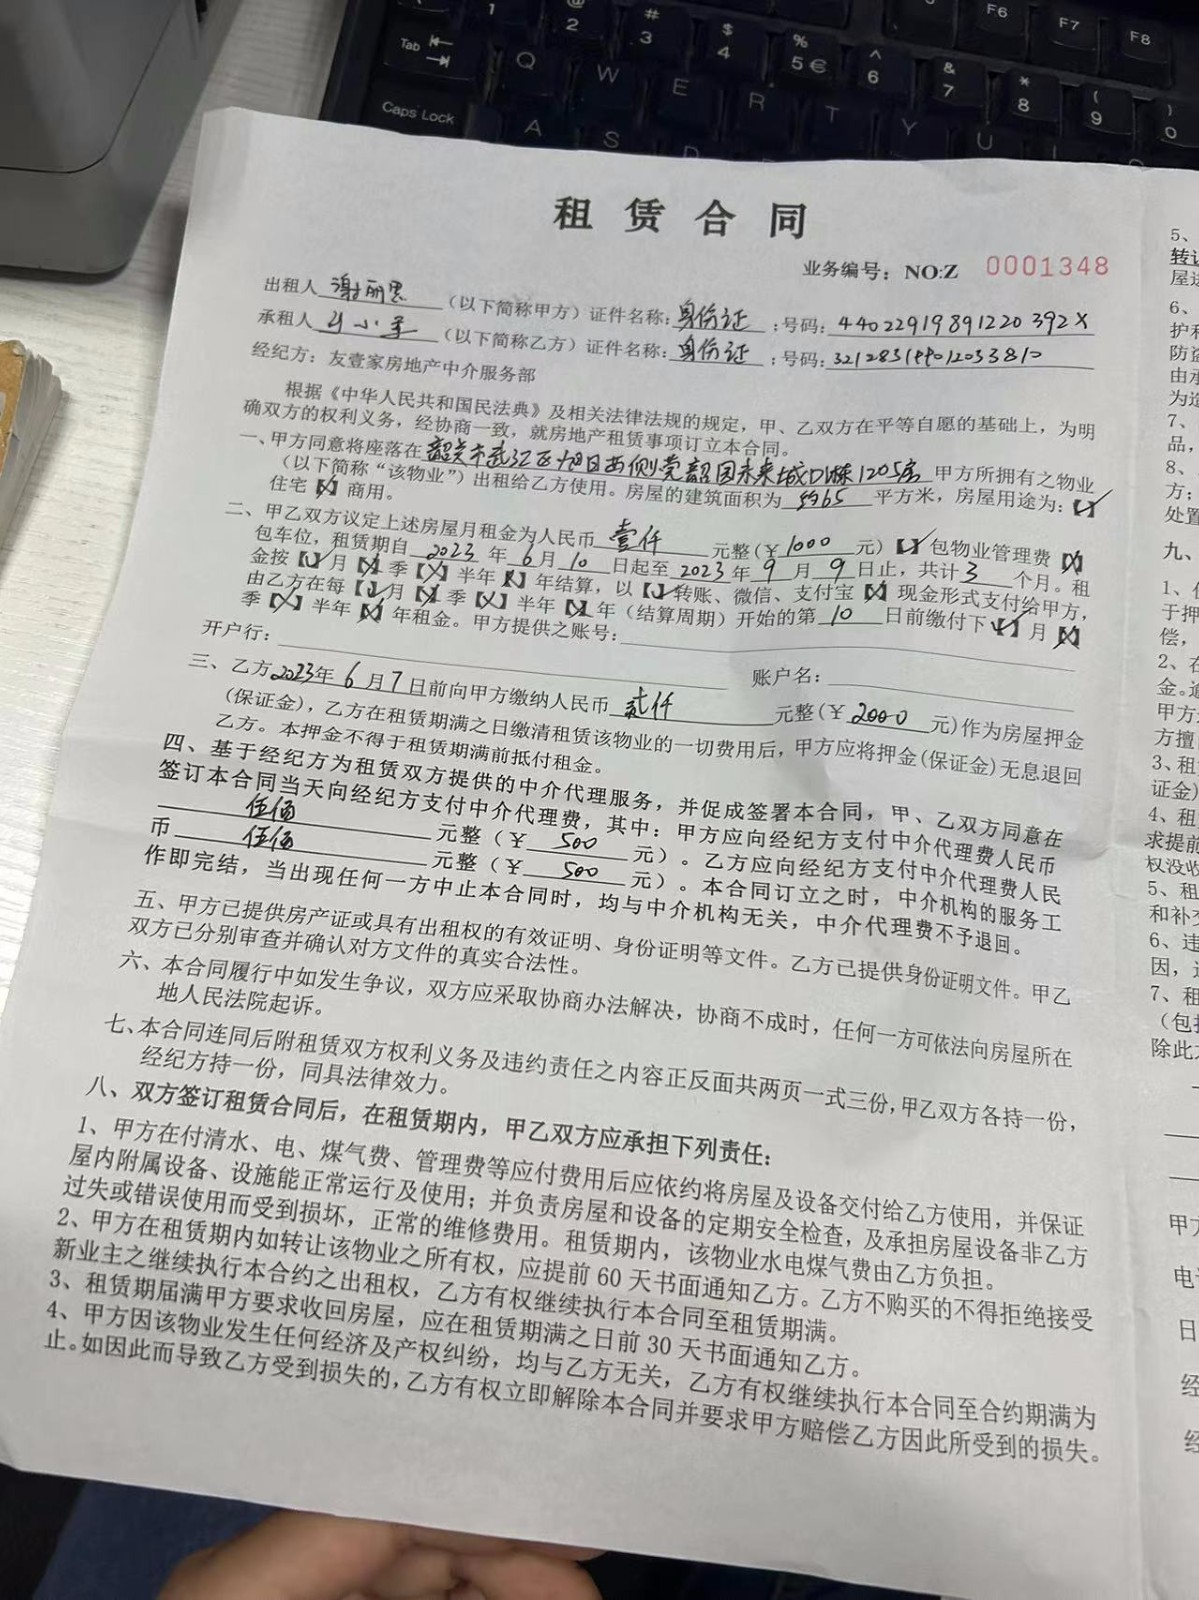 租 赁 合 同
业务编号：NO:Z 0001348
出租人 谢丽思 （以下简称甲方）证件名称：身份证 ；号码：44022919891220392X
承租人 小 （以下简称乙方）证件名称：身份证 ；号码：
经纪方：友壹家房地产中介服务部
根据《中华人民共和国民法典》及相关法律法规的规定，甲、乙双方在平等自愿的基础上，为明
确双方的权利义务，经协商一致，就房地产租赁事项订立本合同。
一、甲方同意将座落在 韶关市武江区 西侧 韶园未来城D1栋1205房 甲方所拥有之物业
（以下简称“该物业”）出租给乙方使用。房屋的建筑面积为 约65 平方米，房屋用途为：【✓】
住宅【×】商用。
二、甲乙双方议定上述房屋月租金为人民币 壹仟 元整（¥ 1000 元）【✓】包物业管理费【×】
包车位，租赁期自 2023 年 6 月 10 日起至 2023 年 9 月 9 日止，共计 3 个月。租
金按【✓】月【×】季【×】半年【×】年结算，以【✓】转账、微信、支付宝【×】现金形式支付给甲方，
由乙方在每【✓】月【×】季【×】半年【×】年（结算周期）开始的第 10 日前缴付下【✓】月【×】
季【×】半年【×】年租金。甲方提供之账号：
开户行： 账户名：
三、乙方 2023年 6 月 7 日前向甲方缴纳人民币 贰仟 元整（¥ 2000 元）作为房屋押金
（保证金），乙方在租赁期满之日缴清租赁该物业的一切费用后，甲方应将押金（保证金）无息退回
乙方。本押金不得于租赁期满前抵付租金。
四、基于经纪方为租赁双方提供的中介代理服务，并促成签署本合同，甲、乙双方同意在
签订本合同当天向经纪方支付中介代理费，其中：甲方应向经纪方支付中介代理费人民币
伍佰 元整（¥ 500 元）。乙方应向经纪方支付中介代理费人民
币 伍佰 元整（¥ 500 元）。本合同订立之时，中介机构的服务工
作即完结，当出现任何一方中止本合同时，均与中介机构无关，中介代理费不予退回。
五、甲方已提供房产证或具有出租权的有效证明、身份证明等文件。乙方已提供身份证明文件。甲乙
双方已分别审查并确认对方文件的真实合法性。
六、本合同履行中如发生争议，双方应采取协商办法解决，协商不成时，任何一方可依法向房屋所在
地人民法院起诉。
七、本合同连同后附租赁双方权利义务及违约责任之内容正反面共两页一式三份，甲乙双方各持一份，
经纪方持一份，同具法律效力。
八、双方签订租赁合同后，在租赁期内，甲乙双方应承担下列责任：
1、甲方在付清水、电、煤气费、管理费等应付费用后应依约将房屋及设备交付给乙方使用，并保证
屋内附属设备、设施能正常运行及使用；并负责房屋和设备的定期安全检查，及承担房屋设备非乙方
过失或错误使用而受到损坏，正常的维修费用。租赁期内，该物业水电煤气费由乙方负担。
2、甲方在租赁期内如转让该物业之所有权，应提前 60 天书面通知乙方。乙方不购买的不得拒绝接受
新业主之继续执行本合约之出租权，乙方有权继续执行本合同至租赁期满。
3、租赁期届满甲方要求收回房屋，应在租赁期满之日前 30 天书面通知乙方。
4、甲方因该物业发生任何经济及产权纠纷，均与乙方无关，乙方有权继续执行本合同至合约期满为
止。如因此而导致乙方受到损失的，乙方有权立即解除本合同并要求甲方赔偿乙方因此所受到的损失。